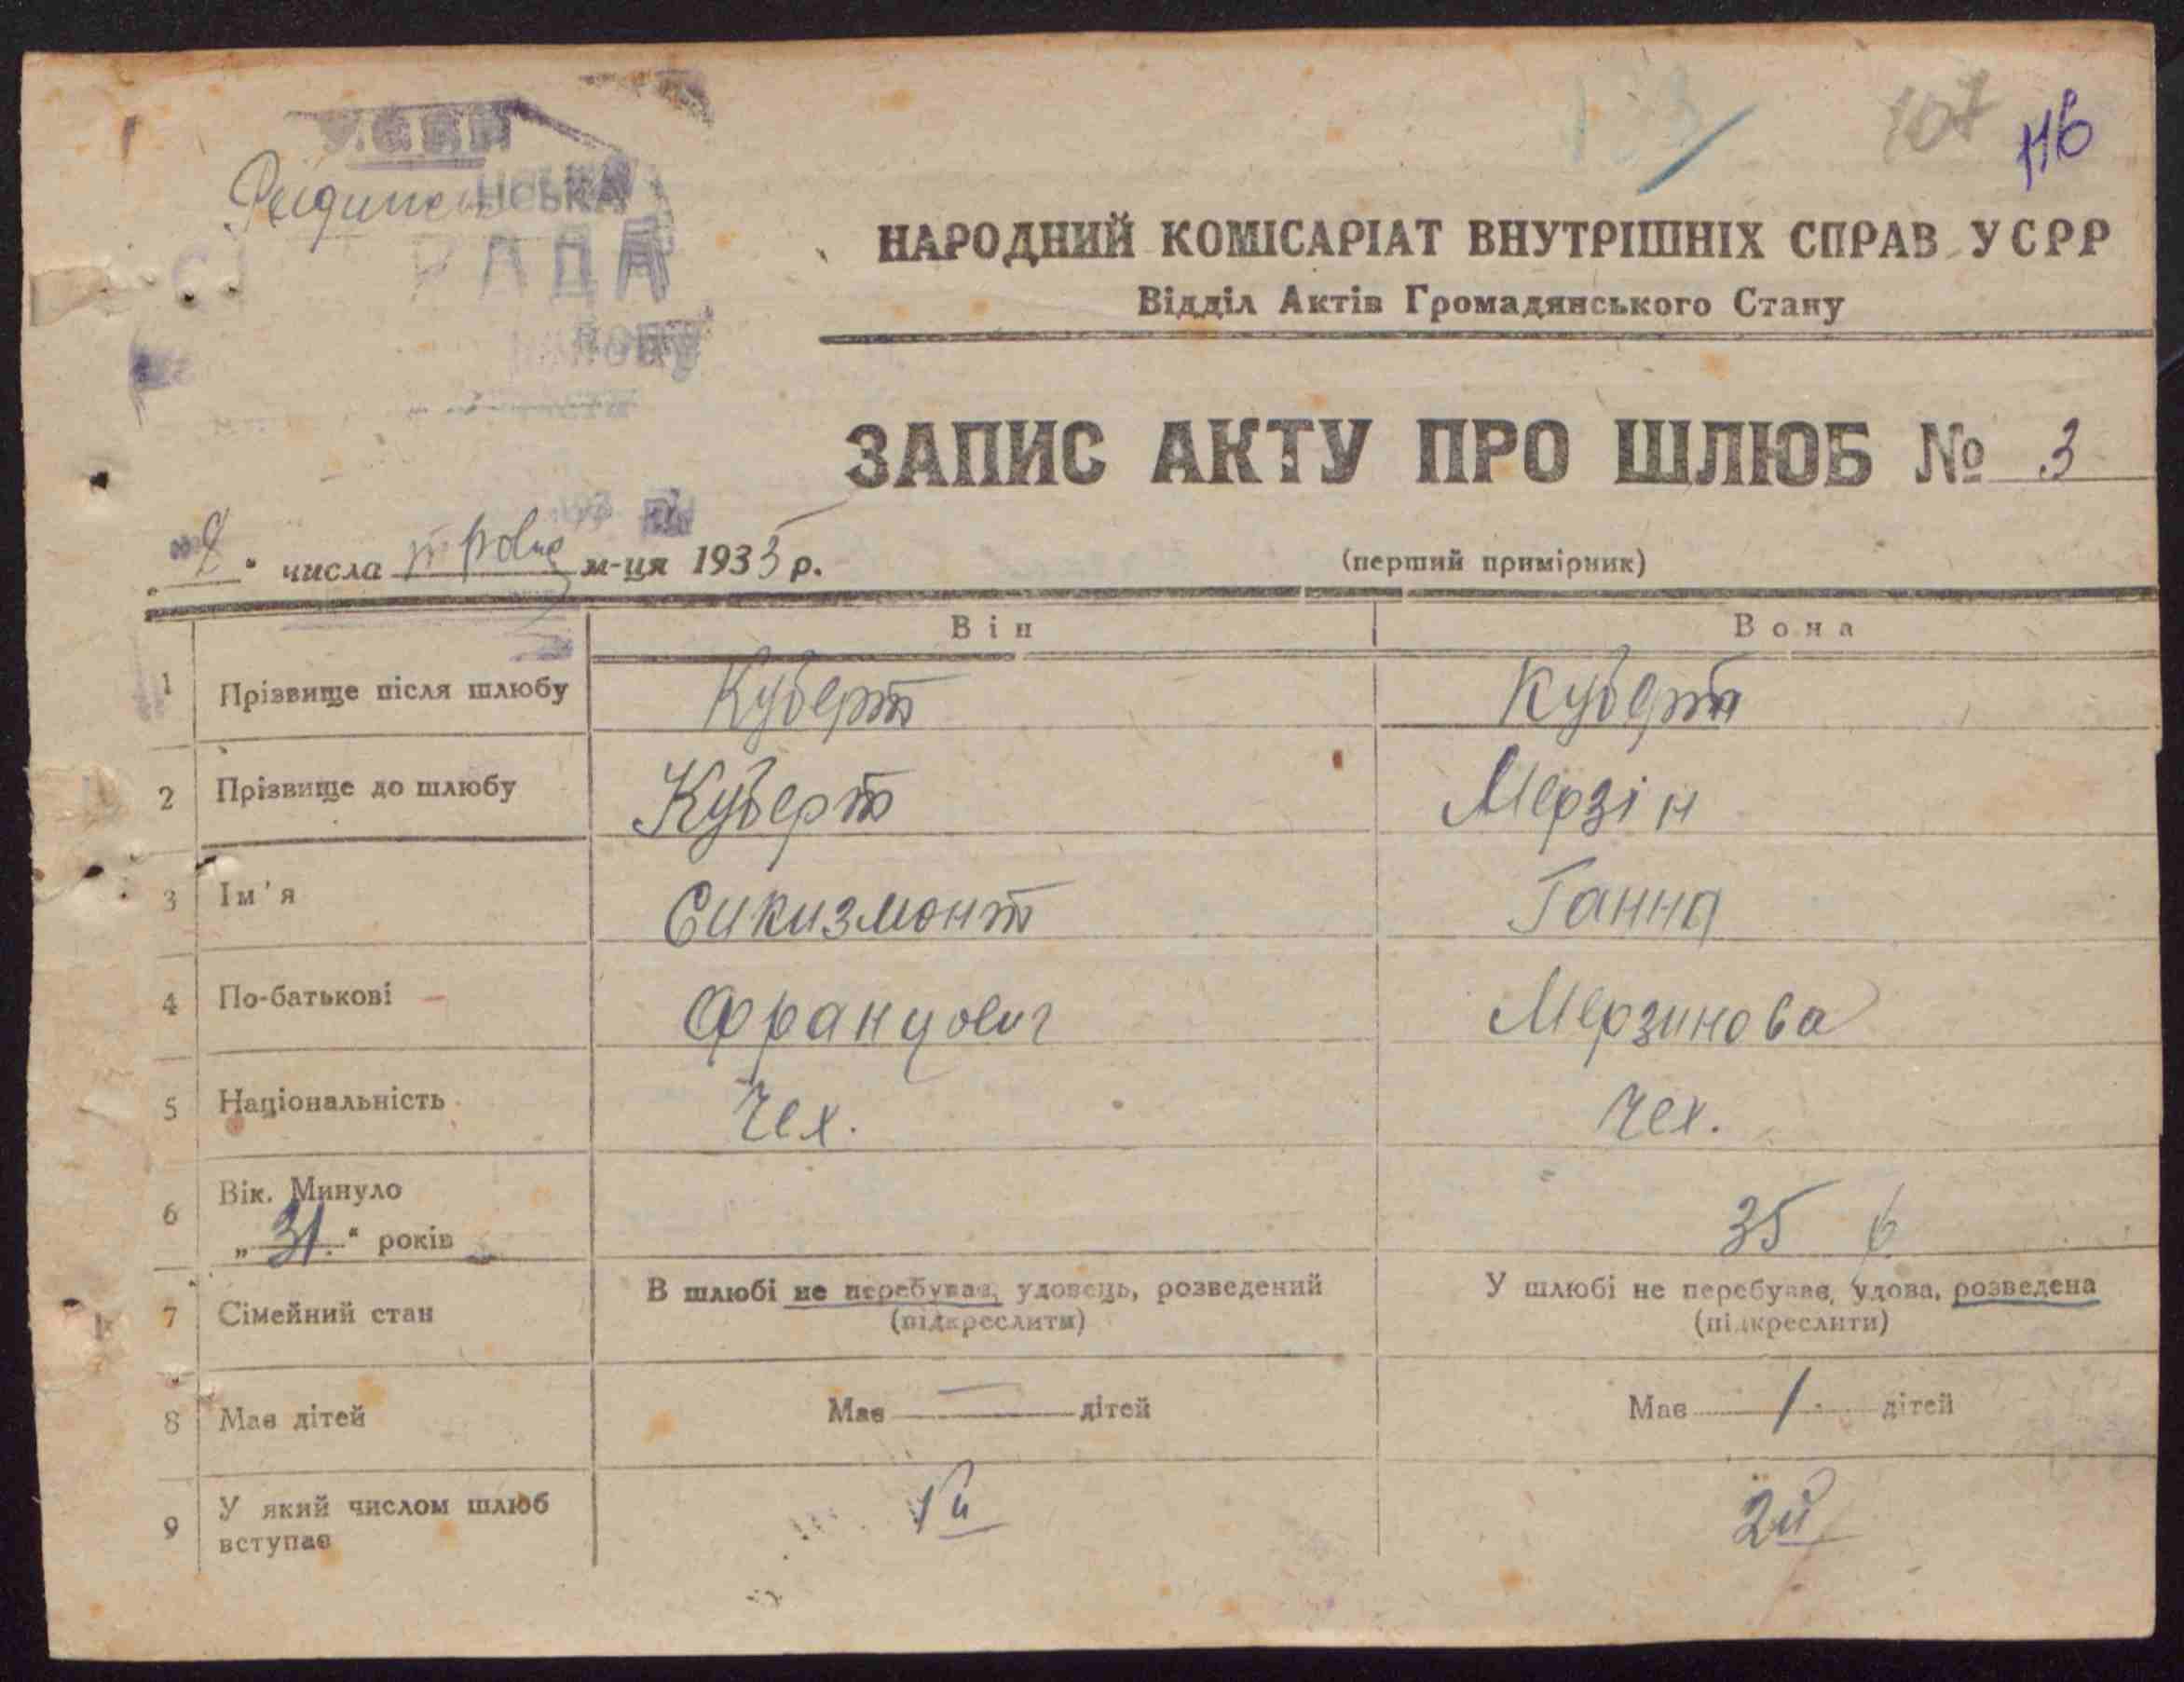 У.С.Р.Р.
НСЬКА
РАДА
107
116
НАРОДНИЙ КОМІСАРІАТ ВНУТРІШНІХ СПРАВ УСРР
Відділ Актів Громадянського Стану
ЗАПИС АКТУ ПРО ШЛЮБ № 3
числа м-ця 1935 р.
(перший примірник)
Він Вона
1 Прізвище після шлюбу Куберт Куберт
2 Прізвище до шлюбу Куберт Мерзін
3 Ім'я Сикизмонт Ганна
4 По-батькові Францович Мерзинова
5 Національність Чех. Чех.
6 Вік. Минуло
„ 31. “ років 35
7 Сімейний стан В шлюбі не перебуває, удовець, розведений У шлюбі не перебуває, удова, розведена
(підкреслити) (підкреслити)
8 Має дітей Має — дітей Має 1 дітей
9 У який числом шлюб 1й 2й
вступає